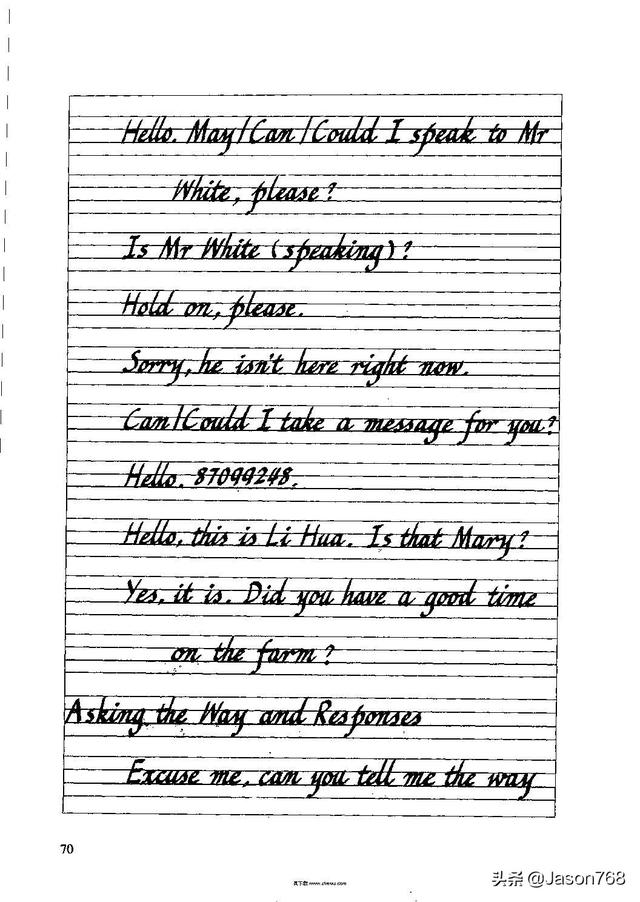 Hello. May/Can/Could I speak to Mr
White, please?
Is Mr White (speaking)?
Hold on, please.
Sorry, he isn't here right now.
Can/Could I take a message for you?
Hello. 87099248.
Hello, this is Li Hua. Is that Mary?
Yes, it is. Did you have a good time
on the farm?
Asking the Way and Responses
Excuse me, can you tell me the way
70
头条 @Jason768